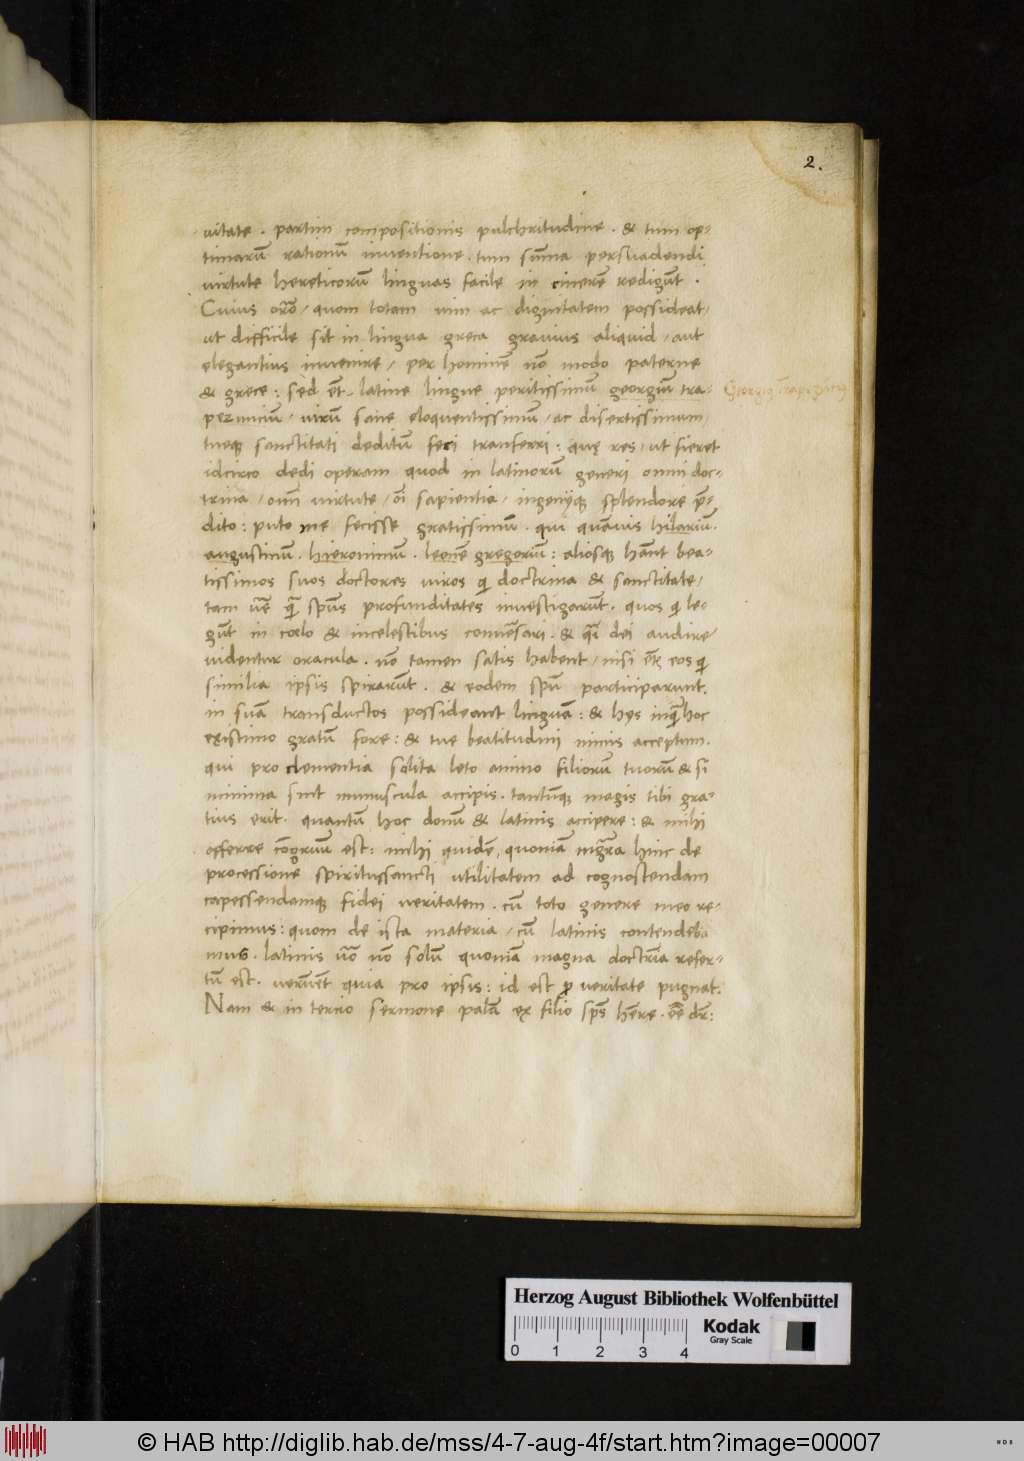 2.
vitate . partim compositionis pulchritudine . & tum op-
timarũ rationũ inventione . tum sũma persuadendi
virtute hereticorũ linguas facile in cinerẽ redigũt .
Cuius orõ / quom totam uim ac dignitatem possideat /
ut difficile sit in lingua greca gravius aliquid / aut
elegantius invenire / per hominẽ nõ modo paterne
& grece : sed ẽt latine lingue peritissimũ georgiũ tra-
Georgiũ Trapezũtiũ
pezuncium / virũ sane eloquentissimũ / ac disertissimum /
tueqȝ sanctitati deditũ feci tranferri : quę res / ut fieret
idcirco dedi operam quod in latinorũ generi omni doc-
trina / omĩ virtute / oĩ sapientia / ingenijqȝ splendore p̃-
dito : puto me fecisse gratissimũ . qui quãvis hilariũ .
augustinũ . hieronimũ . leonẽ gregoriũ : aliosqȝ hãnt bea-
tissimos suos doctores viros q̃ doctrina & sanctitate /
tam ũẽ q̃ spũs profunditates investigarũt . quos q̃ le-
gũt in coelo & incelestibus conuẽsari . & q̃i dei audire
videntur oracula . nõ tamen satis habent / nisi ẽt eos q̃
similia ipsis spirarũt . & eodem spũ participarunt .
in suã transductos possideant linguã : & hijs inquã hoc
existimo gratũ fore : & tue beatitudini nimis acceptum .
qui pro clementia solita leto animo filiorũ tuorũ & si
minima sint munuscula accipis . tantũqȝ magis tibi gra-
tius erit . quantũ hoc donũ & latinis accipere : & mihi
offerre cõgruũ est : mihi quidẽ / quoniã magna hinc de
processione spiritussancti utilitatem ad cognoscendam
capessendamqȝ fidei veritatem . cũ toto genere meo re-
cipimus : quom de ista materia / cũ latinis contendeba
mus . latinis ũo nõ solũ quoniã magna doctrĩa refer-
tũ est . verũẽt quia pro ipsis : id est p veritate pugnat .
Nam & in tercio sermone palã ex filio sp̃s hẽre . eẽ dr̃ :
Herzog August Bibliothek Wolfenbüttel
Kodak
Gray Scale
0 1 2 3 4
© HAB http://diglib.hab.de/mss/4-7-aug-4f/start.htm?image=00007